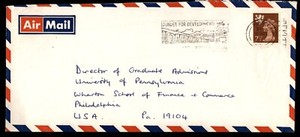 Air Mail
DUNDEE FOR DEVELOPMENT
Director of Graduate Admissions
University of Pennsylvania
Wharton School of Finance & Commerce
Philadelphia
U.S.A. Pa. 19104